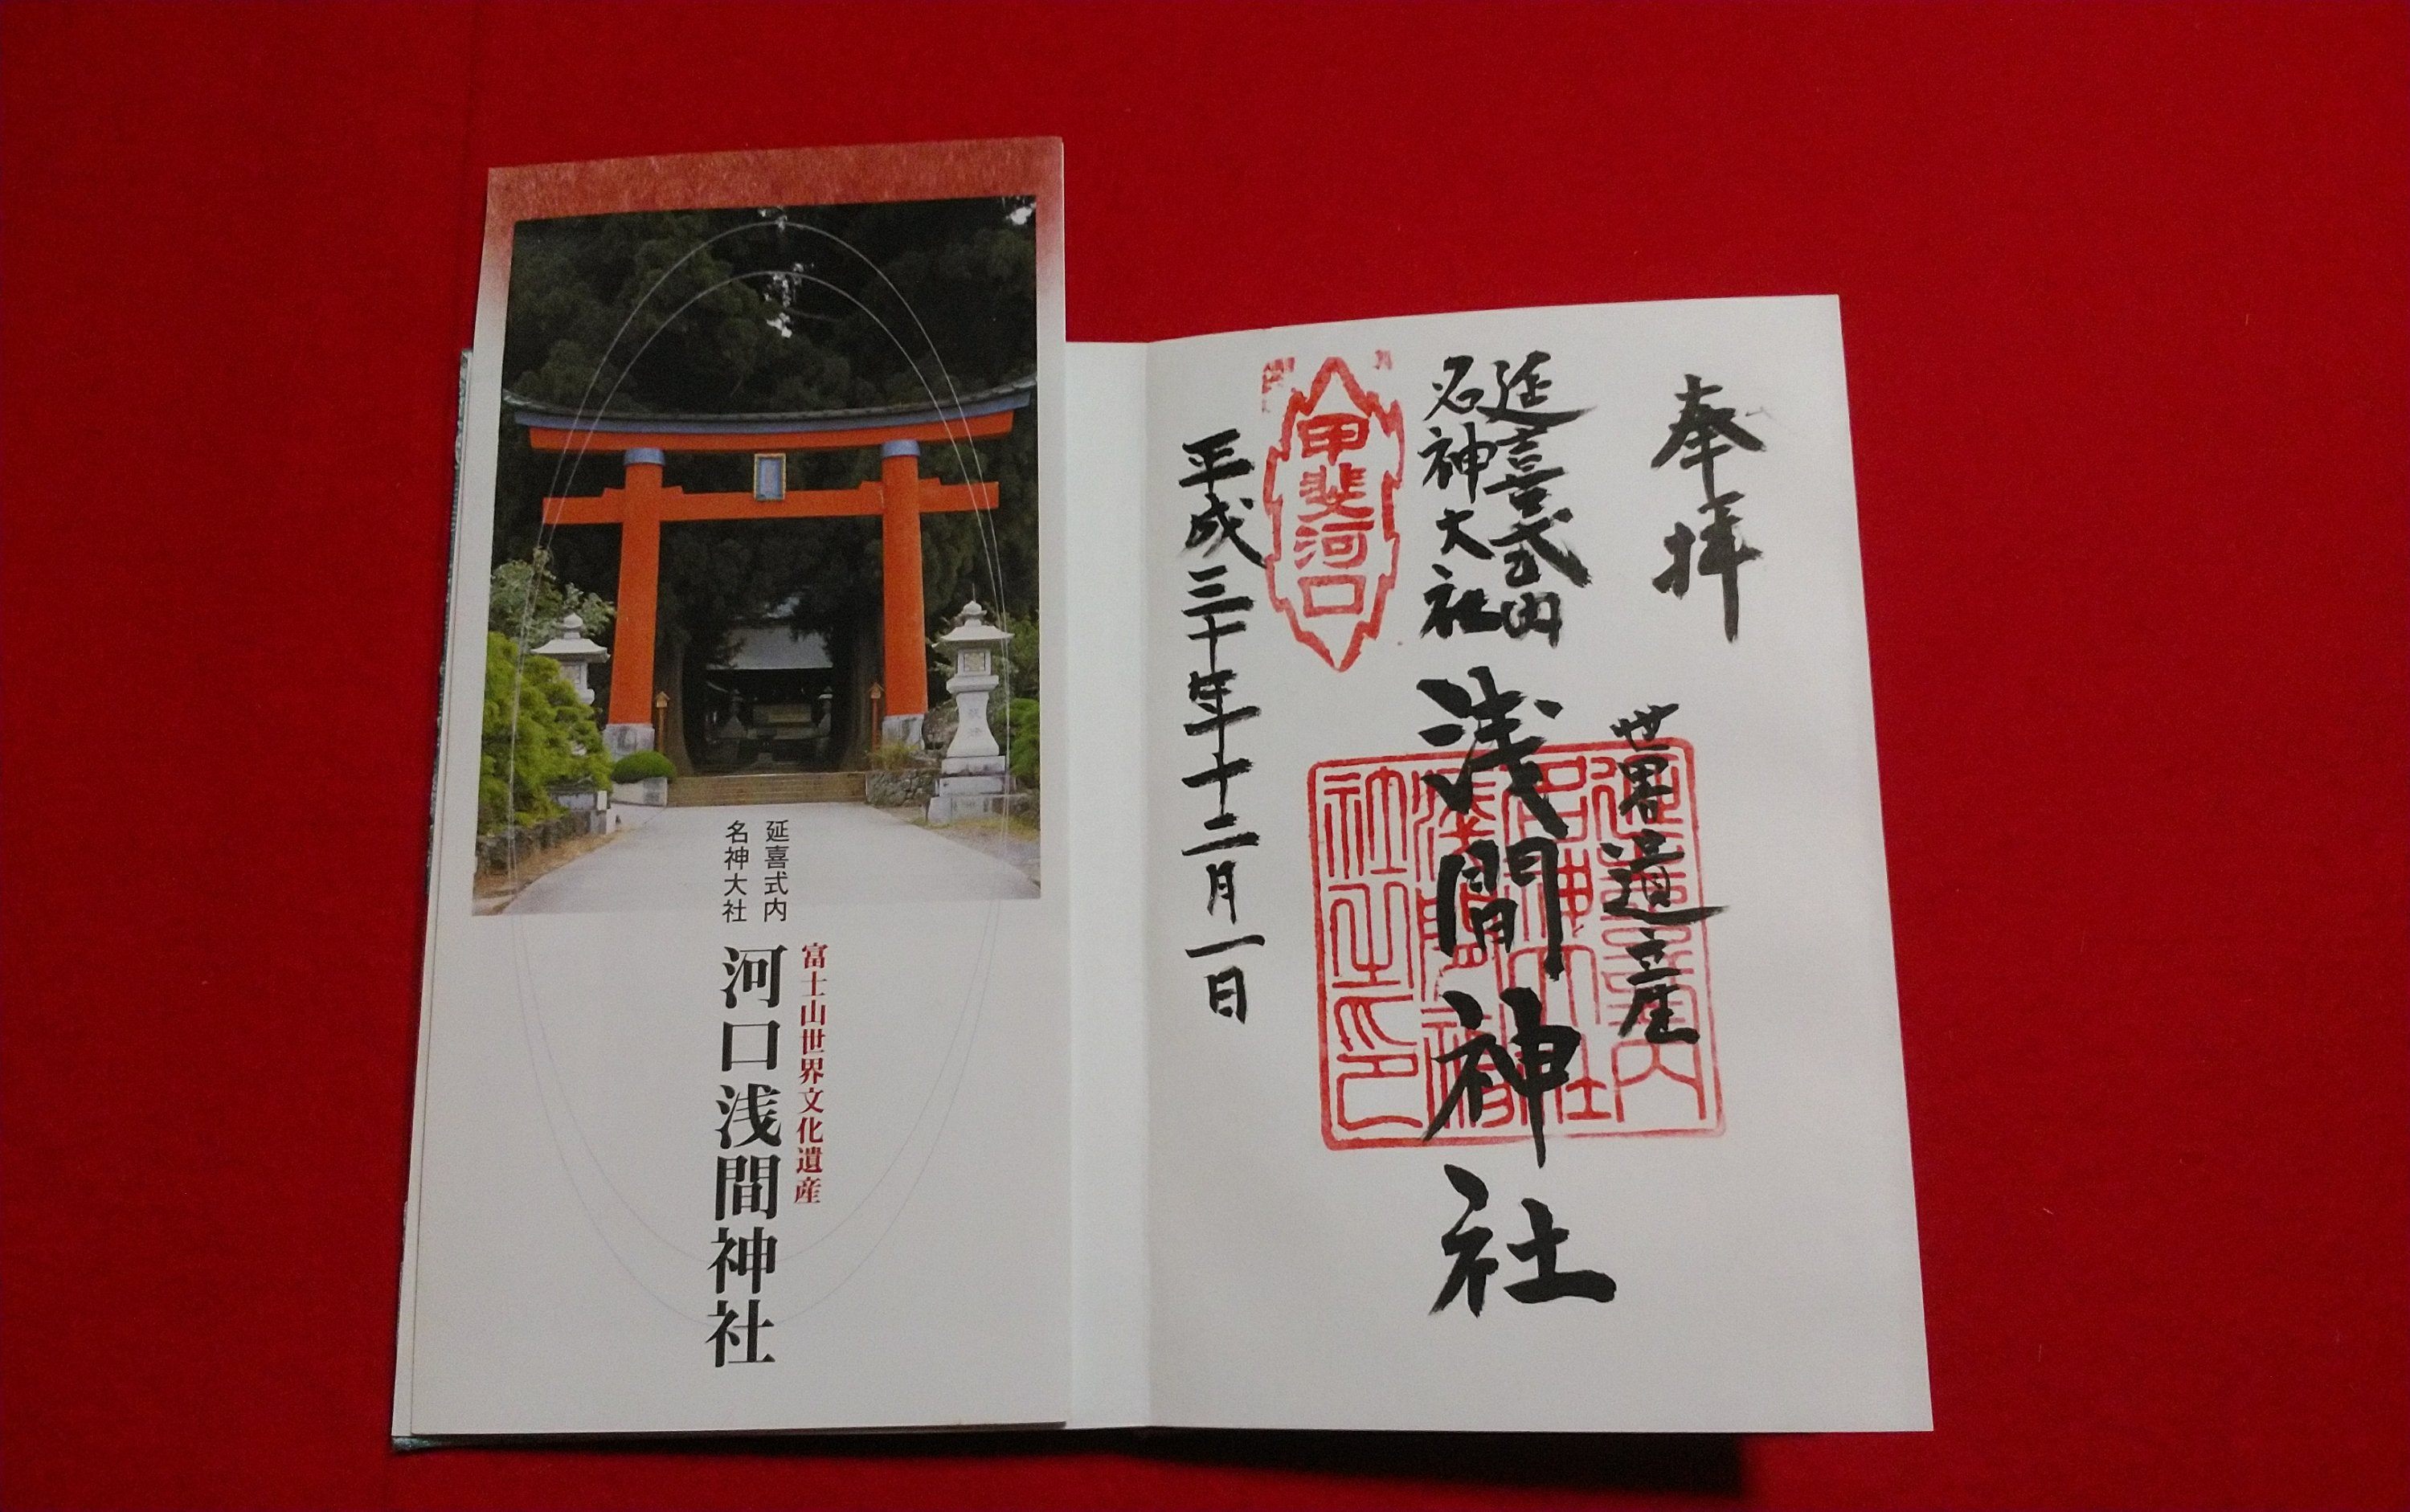 延喜式内
名神大社
富士山世界文化遺産
河口浅間神社
奉拝
世界遺産
延喜式内
名神大社
浅間神社
甲斐河口
平成三十年十二月一日